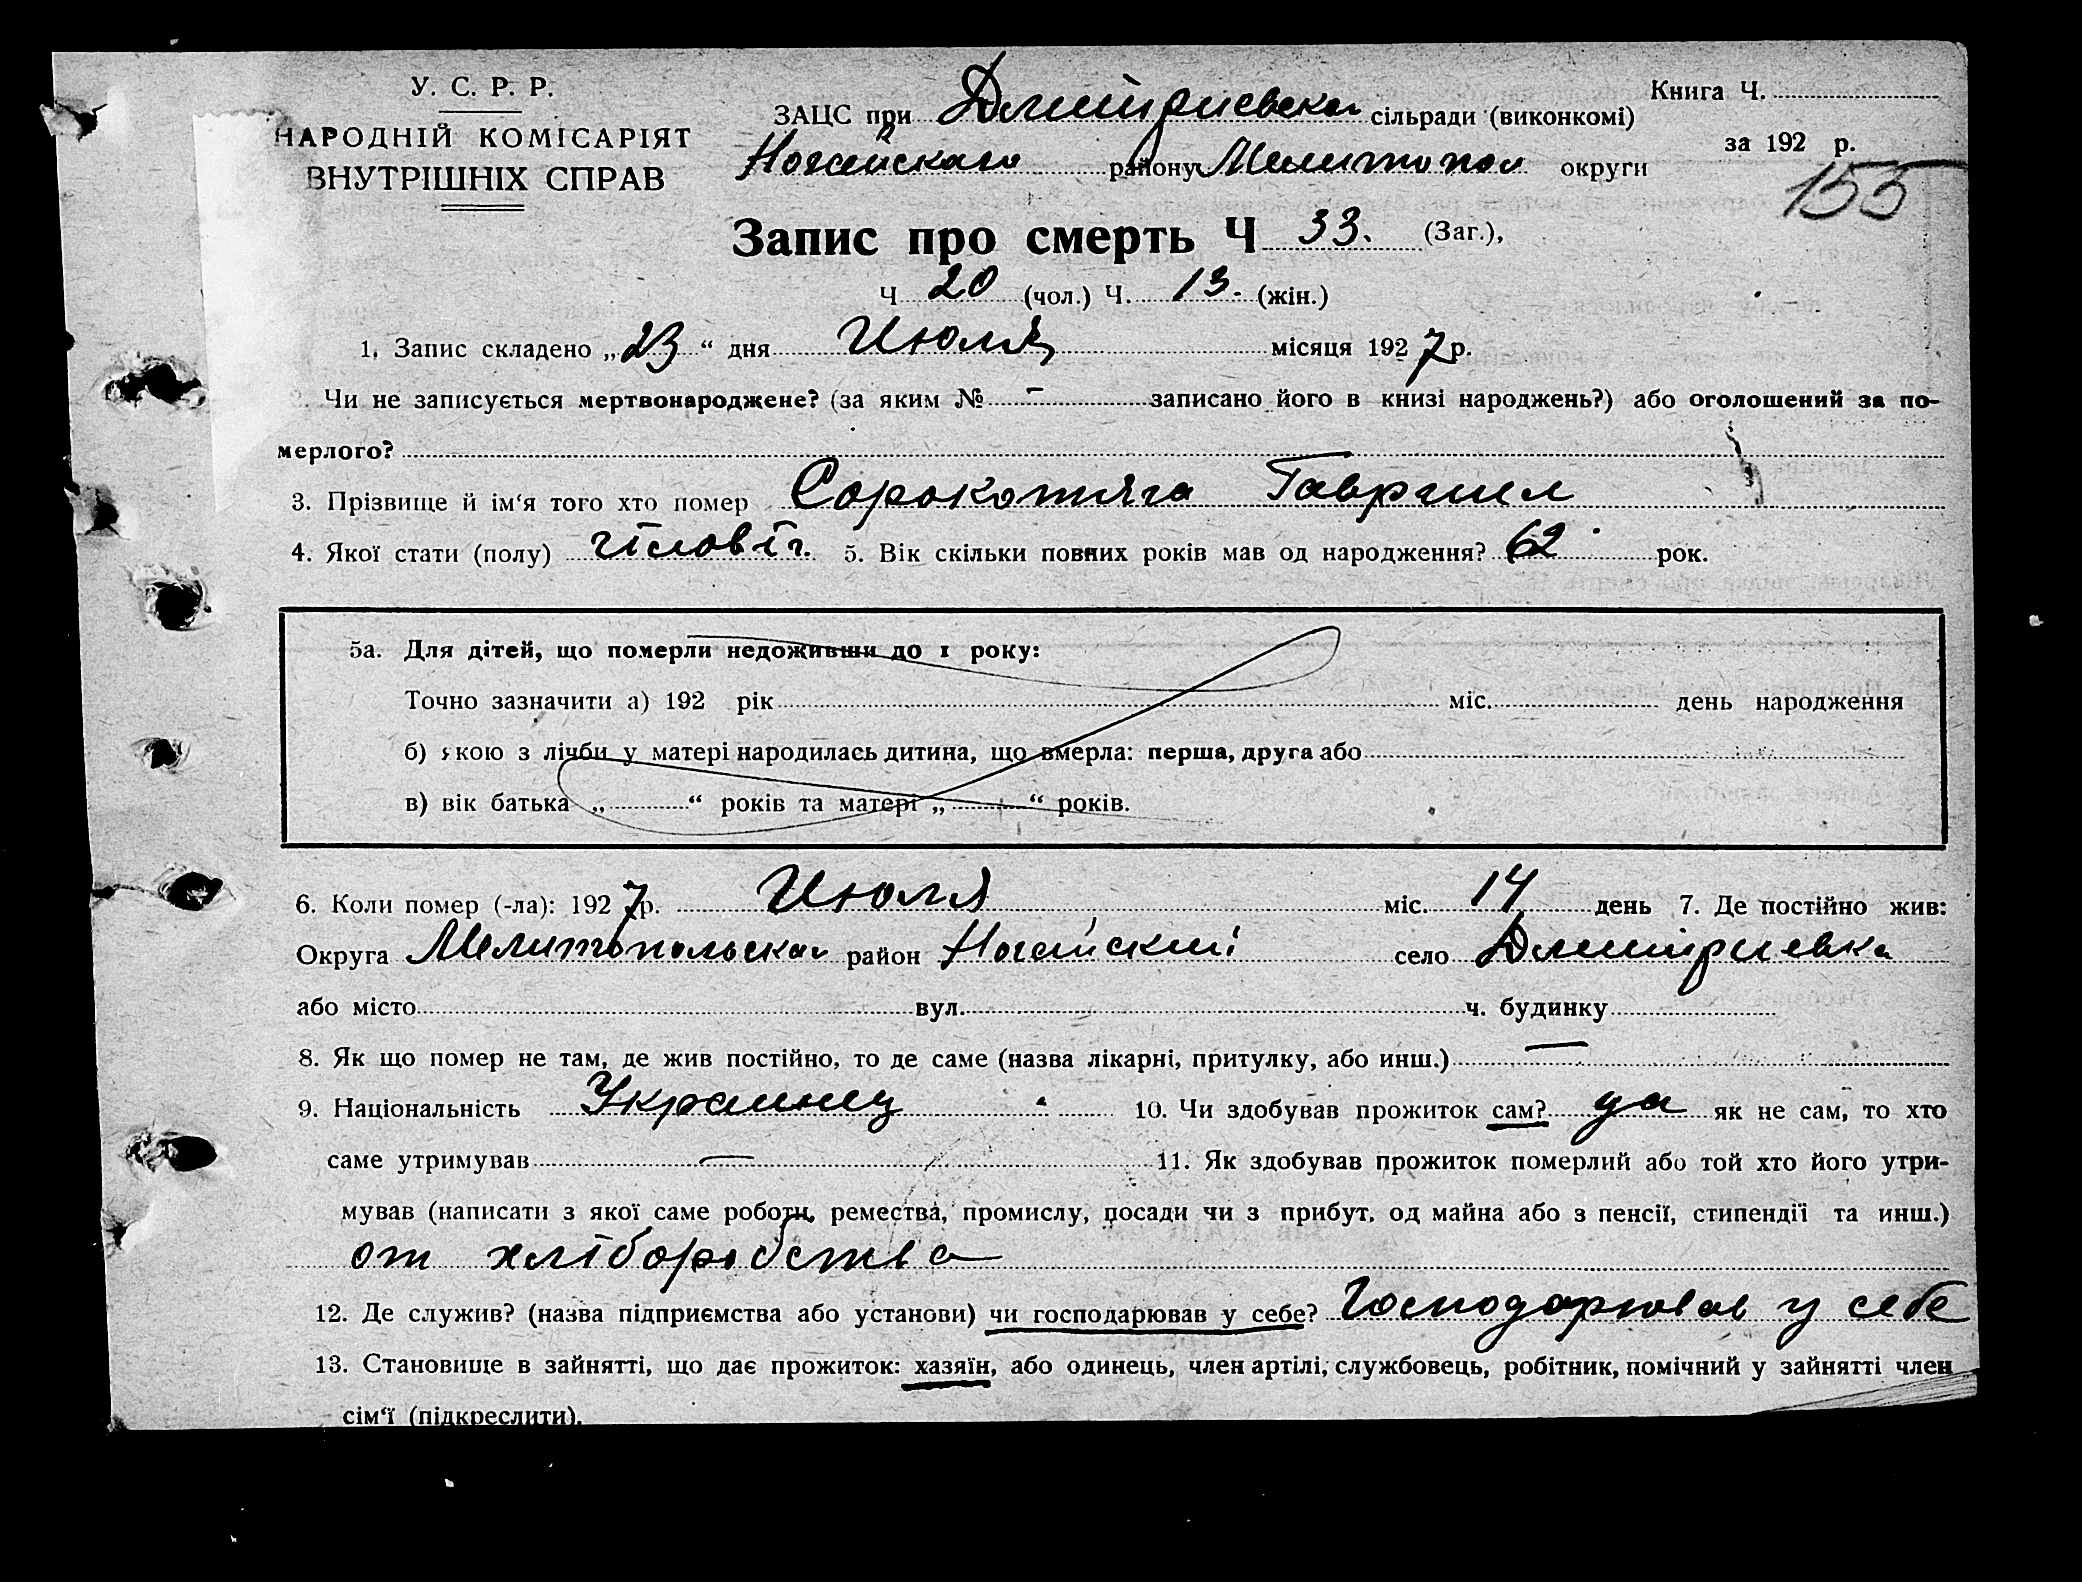 У. С. Р. Р.
НАРОДНІЙ КОМІСАРІЯТ
ВНУТРІШНІХ СПРАВ
ЗАЦС при Дмитриевская сільради (виконкомі)
Ногайскаго району Мелитопол округи
Книга Ч.
за 192 р.
155
Запис про смерть Ч 33. (Заг.),
Ч 20 (чол.) Ч. 13. (жін.)
1. Запис складено „23“ дня Июля місяця 1927 р.
Чи не записується мертвонароджене? (за яким № – записано його в книзі народжень?) або оголошений за по-
мерлого?
3. Прізвище й ім‘я того хто помер Сорокотяга Гавриил
4. Якої стати (полу) чіловіч. 5. Вік скільки повних років мав од народження? 62 рок.
5а. Для дітей, що померли недоживши до 1 року:
Точно зазначити а) 192 рік міс. день народження
б) якою з лічби у матері народилась дитина, що вмерла: перша, друга або
в) вік батька „ “ років та матері „ “ років.
6. Коли помер (-ла): 1927 р. Июля міс. 14 день 7. Де постійно жив:
Округа Мелитопольская район Ногайский село Дмитриевка
або місто вул. ч. будинку
8. Як що помер не там, де жив постійно, то де саме (назва лікарні, притулку, або инш.) —
9. Національність Украинец 10. Чи здобував прожиток сам? да як не сам, то хто
саме утримував — 11. Як здобував прожиток померлий або той хто його утри-
мував (написати з якої саме роботи, ремества, промислу, посади чи з прибут. од майна або з пенсії, стипендії та инш.)
от хліборобства
12. Де служив? (назва підприємства або установи) чи господарював у себе? Господарював у себе
13. Становище в зайнятті, що дає прожиток: хазяїн, або одинець, член артілі, службовець, робітник, помічний у зайнятті член
сім‘ї (підкреслити).